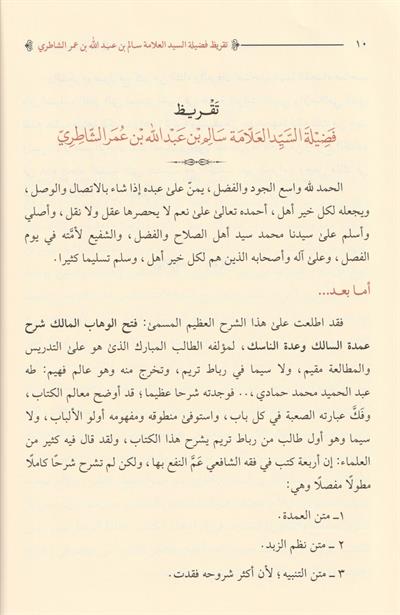 ١٠ تقريظ فضيلة السيد العلامة سالم بن عبد الله بن عمر الشاطري
تَقْـريـظ
فَضِيْلَة السَّيِّد العَلَّامَة سَالِم بن عَبْد الله بْن عُمَر الشَّاطِرِي
الحمد لله واسع الجود والفضل، يمنّ علىٰ عبده إذا شاء بالاتصال والوصل،
ويجعله لكل خير أهل، أحمده تعالىٰ علىٰ نعم لا يحصرها عقل ولا نقل، وأصلي
وأسلم علىٰ سيدنا محمد سيد أهل الصلاح والفضل، والشفيع لأمَّته في يوم
الفصل، وعلىٰ آله وأصحابه الذين هم لكل خير أهل، وسلم تسليما كثيرا.
أما بعـد...
فقد اطلعت علىٰ هذا الشرح العظيم المسمىٰ: فتح الوهاب المالك شرح
عمدة السالك وعدة الناسك، لمؤلفه الطالب المبارك الذىٰ هو علىٰ التدريس
والمطالعة مقيم، ولا سيما في رباط تريم، وتخرج منه وهو عالم فهيم: طه
عبد الحميد محمد حمادي،.. فوجدته شرحا عظيما؛ قد أوضح معالم الكتاب،
وفَكَّ عبارته الصعبة في كل باب، واستوفىٰ منطوقه ومفهومه أولو الألباب، ولا
سيما وهو أول طالب من رباط تريم يشرح هذا الكتاب، ولقد قال فيه كثير من
العلماء: إن أربعة كتب في فقه الشافعي عَمَّ النفع بها، ولكن لم تشرح شرحًا كاملًا
مطولًا مفصلًا وهي:
١ـ متن العمدة.
٢ ـ متن نظم الزبد.
٣ ـ متن التنبيه؛ لأن أكثر شروحه فقدت.